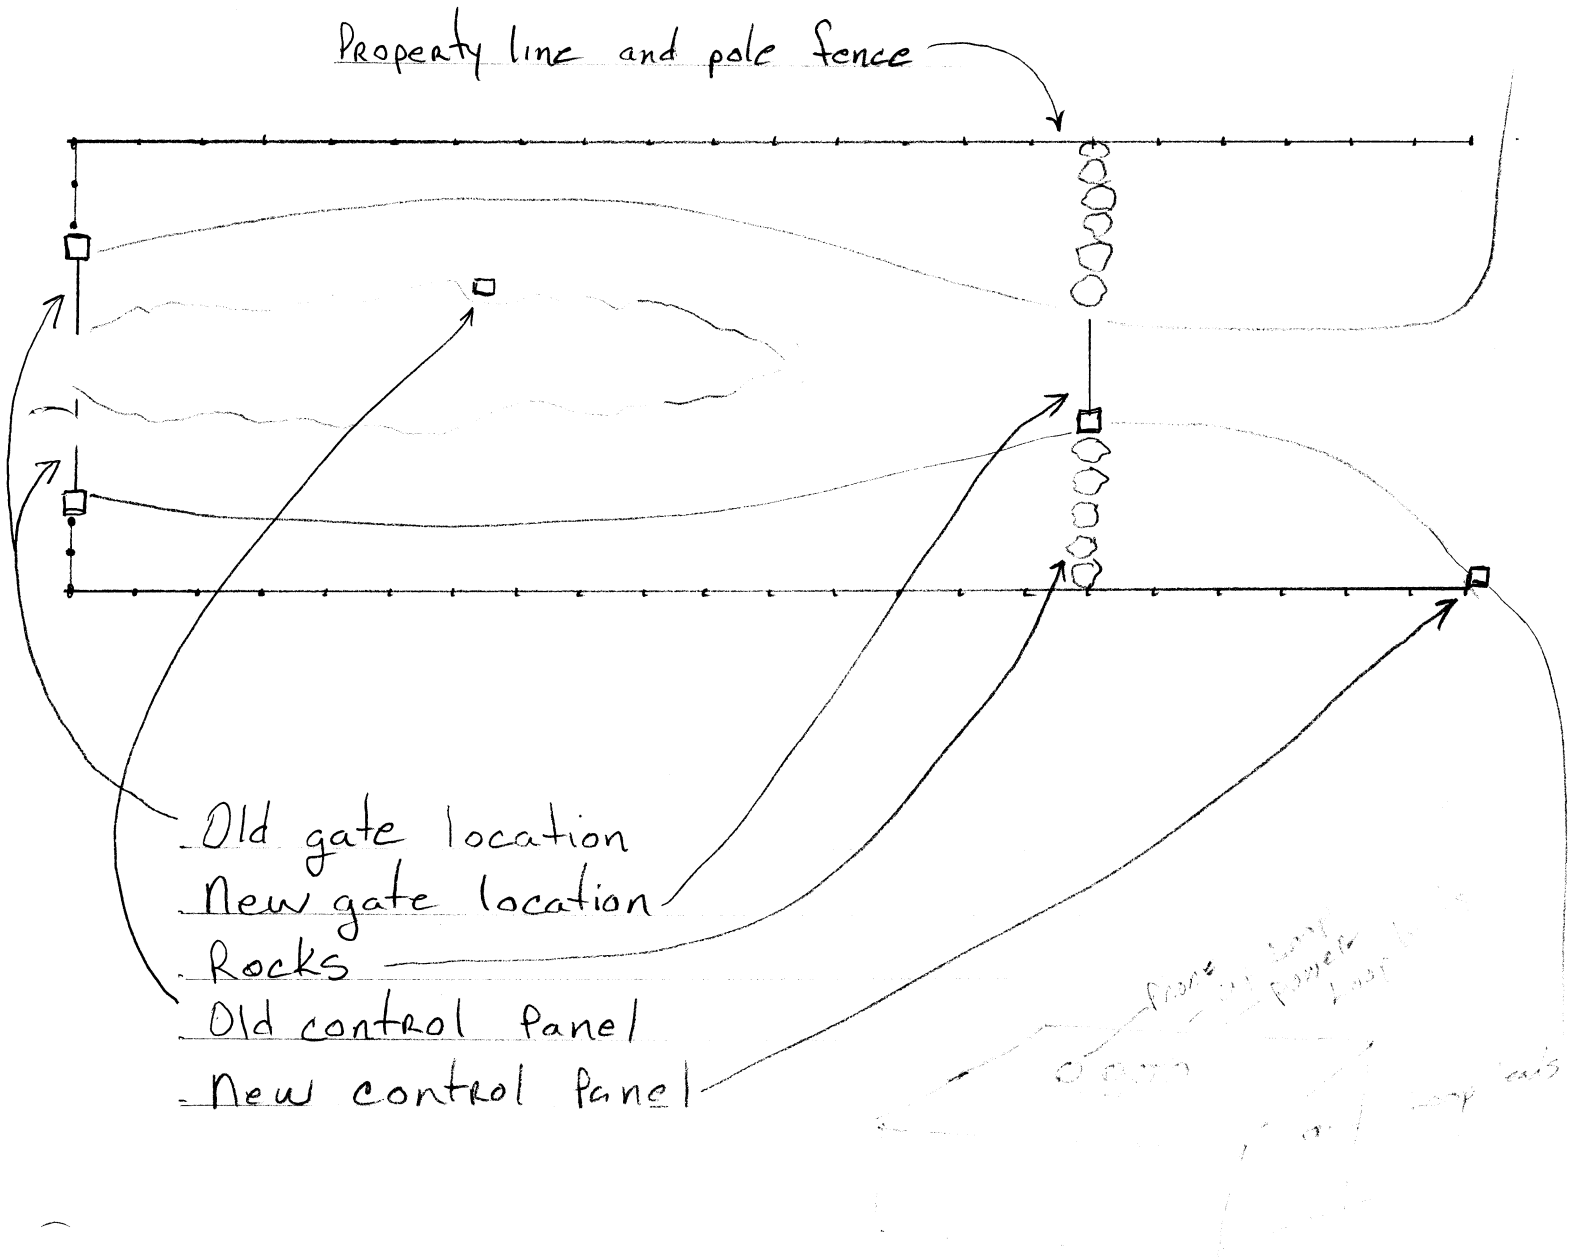 Property line and pole fence
Old gate location
New gate location
Rocks
Old control Panel
New control Panel